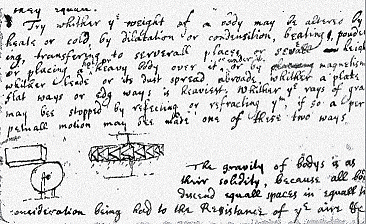 they equall.
Try whither yᵉ weight of a body may be altered by
heate or cold, by dilatation or condensation, beating, poudr
ing, transfering to serverall places or severall heights
or placing a heavy body over it or under it, or by magnetism
whither leade or its dust spread abroade, whither a plate
flat ways or edg ways is heaviest. Whither yᵉ rays of gra
may bee stopped by reflecting or refracting yᵐ, if so a per
petuall motion may bee made one of these two ways
The gravity of bodys is as
their solidity, because all bo
descend equall spaces in equall ti
consideration being had to the Resistance of yᵉ aire &c